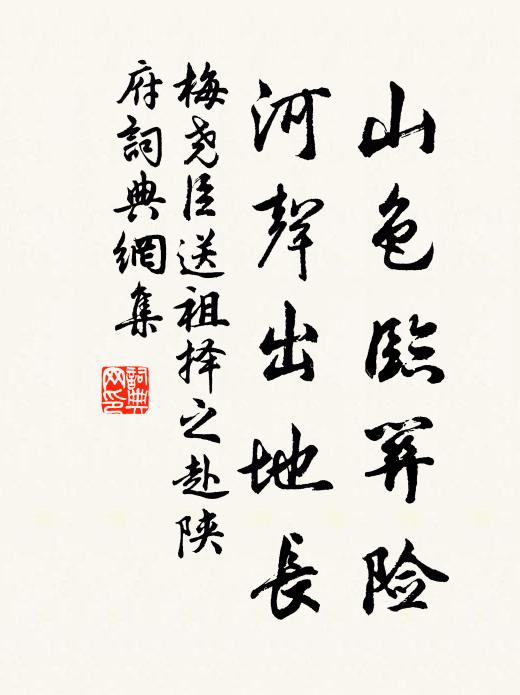 山色臨関险
河聲出地長
梅尧臣送祖择之赴陕
府詞典網集
詞典
网印